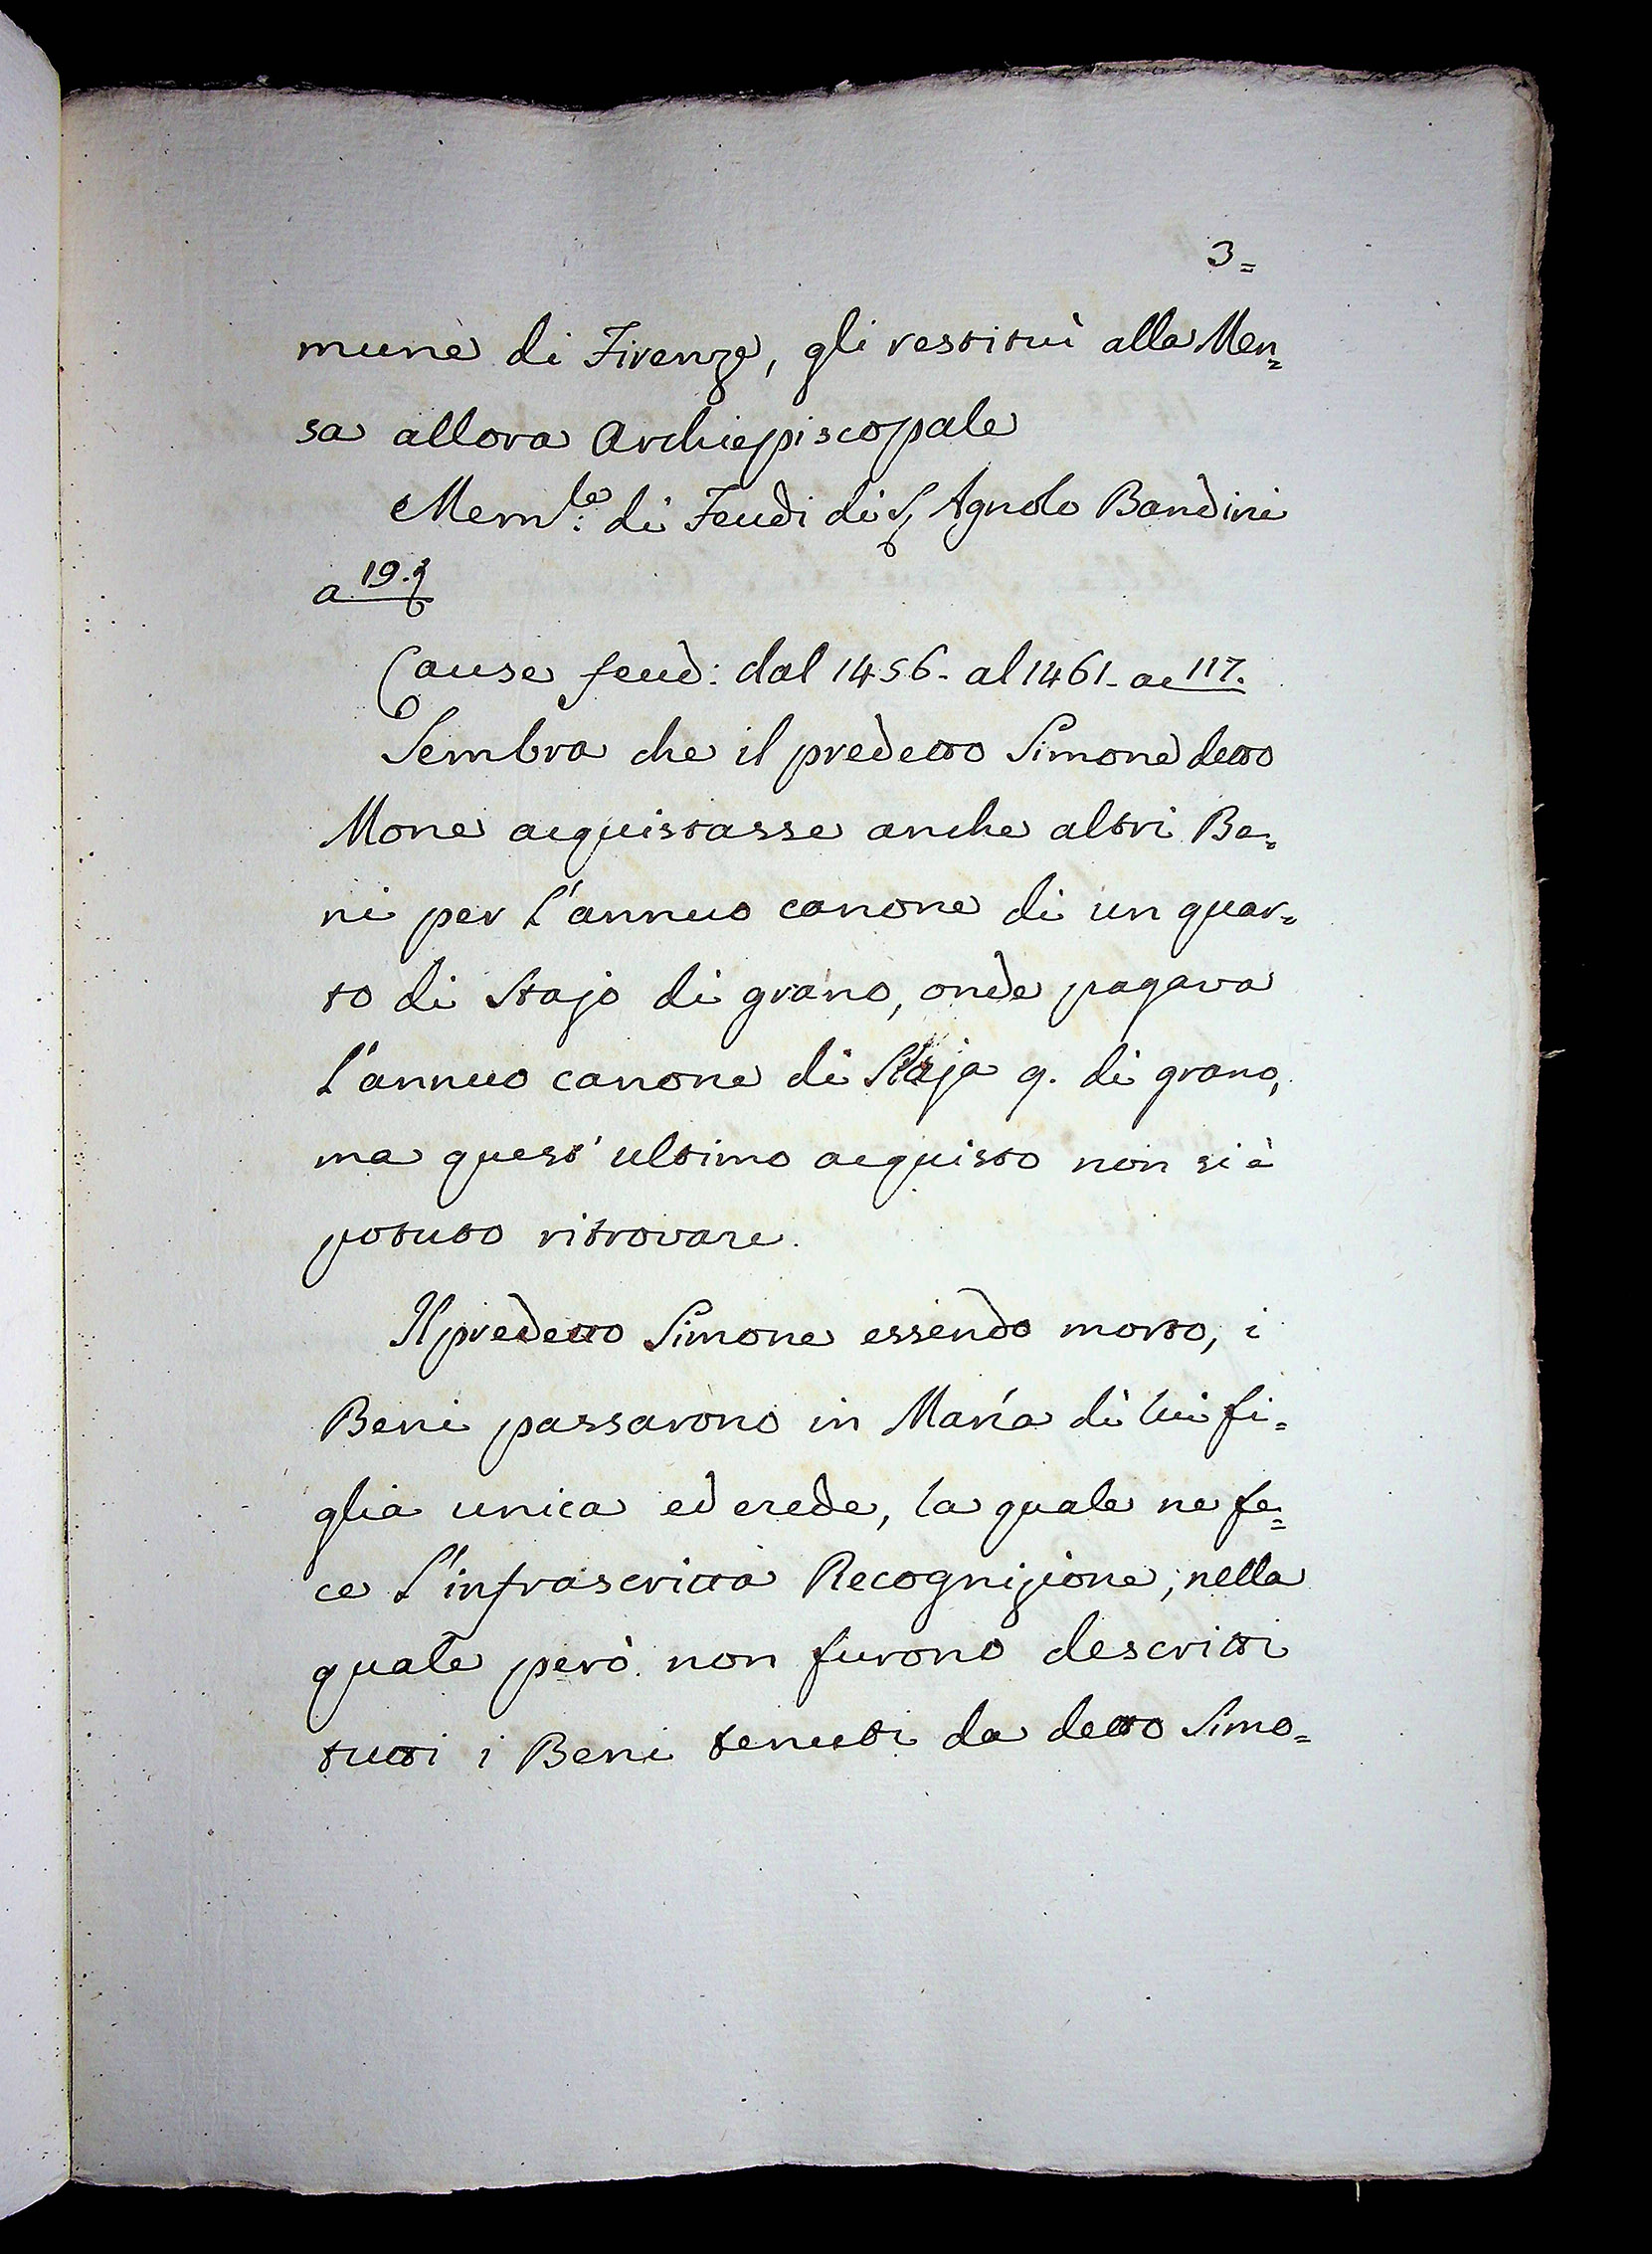 3=
mune di Firenze, gli restituì alla Men=
sa allora Archiepiscopale
Mem.le di Feudi di S. Agnolo Bandini
a 19.
Cause feud: dal 1456. al 1461. ac 117.
Sembra che il predetto Simone detto
Mone acquistasse anche altri Be=
ni per l'annuo canone di un quar=
to di Stajo di grano, onde pagava
l'annuo canone di Staja 9. di grano,
ma quest'ultimo acquisto non si è
potuto ritrovare.
Il predetto Simone essendo morto, i
Beni passarono in Maria di lui fi=
glia unica ed erede, la quale ne fe=
ce l'infrascritta Recognizione, nella
quale però non furono descritti
tutti i Beni tenuti da detto Simo=